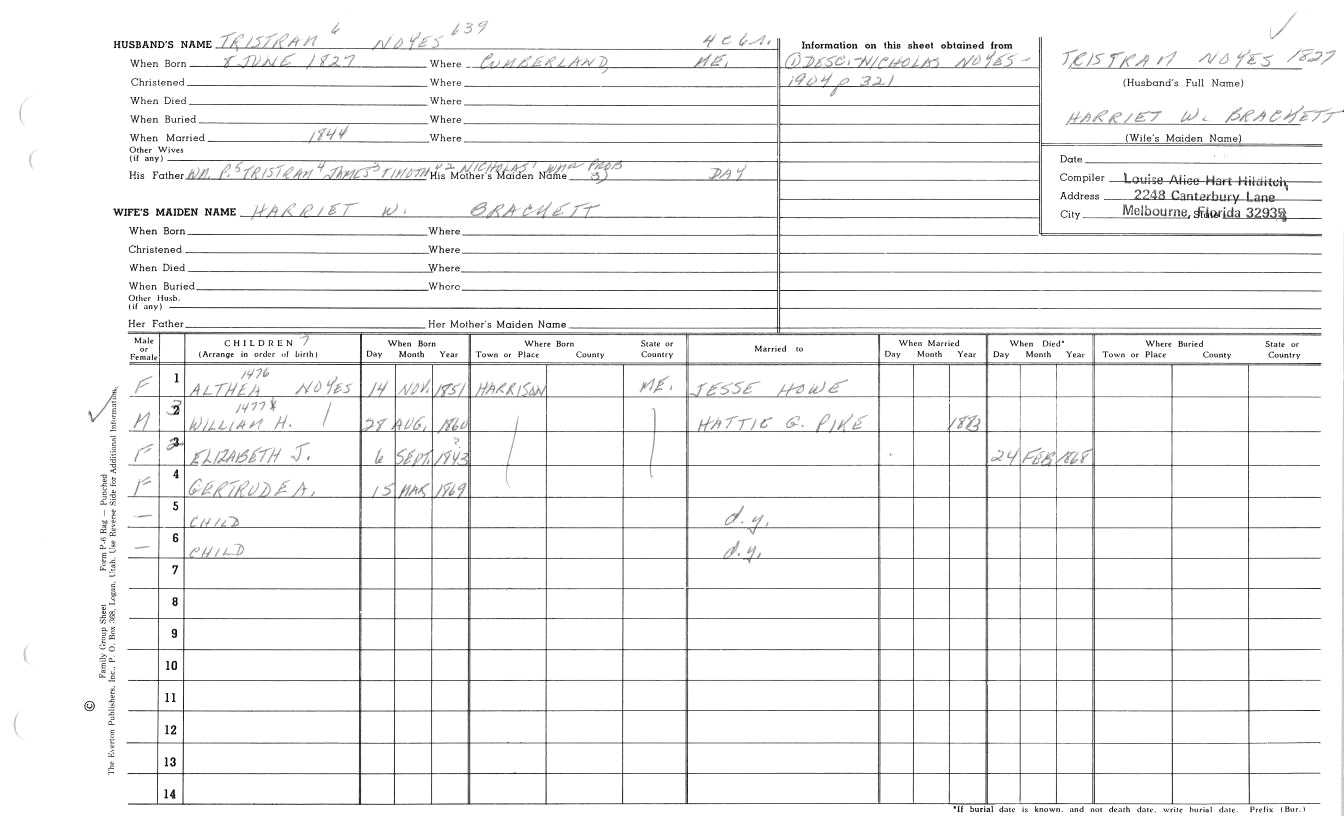 HUSBAND'S NAME TRISTRAM 6 NOYES 639 4 C
When Born 8 JUNE 1827 Where CUMBERLAND, ME.
Christened Where
When Died Where
When Buried Where
When Married 1844 Where
Other Wives
(if any)
His Father WM. P.5 TRISTRAM4 JAMES3 TIMOTHY2 NICHOLAS1 His Mother's Maiden Name DAY
WIFE'S MAIDEN NAME HARRIET W. BRACKETT
When Born Where
Christened Where
When Died Where
When Buried Where
Other Husb.
(if any)
Her Father Her Mother's Maiden Name
Information on this sheet obtained from
(1) DESC. NICHOLAS NOYES -
1904 p 321
TRISTRAM NOYES 1827
(Husband's Full Name)
HARRIET W. BRACKETT
(Wife's Maiden Name)
Date
Compiler Louise Alice Hart Hilditch,
Address 2248 Canterbury Lane
City Melbourne, Florida 32935
Male or Female CHILDREN 7 (Arrange in order of birth) When Born Day Month Year Where Born Town or Place County State or Country Married to When Married Day Month Year When Died* Day Month Year Where Buried Town or Place County State or Country
1476
F 1 ALTHEA NOYES 14 NOV. 1851 HARRISON ME. JESSE HOWE
1477
M 2 3 WILLIAM H. 28 AUG. 1860 HATTIE G. PIKE 1883
F 3 2 ELIZABETH J. 6 SEPT. 1843 ? 24 FEB 1868
F 4 GERTRUDE A. 15 MAR 1869
— 5 CHILD d.y.
— 6 CHILD d.y.
7
8
9
10
11
12
13
14
*If burial date is known, and not death date, write burial date. Prefix (Bur.)
© Family Group Sheet Form P-6 Rag — Punched
The Everton Publishers, Inc., P. O. Box 368, Logan, Utah. Use Reverse Side for Additional Information.